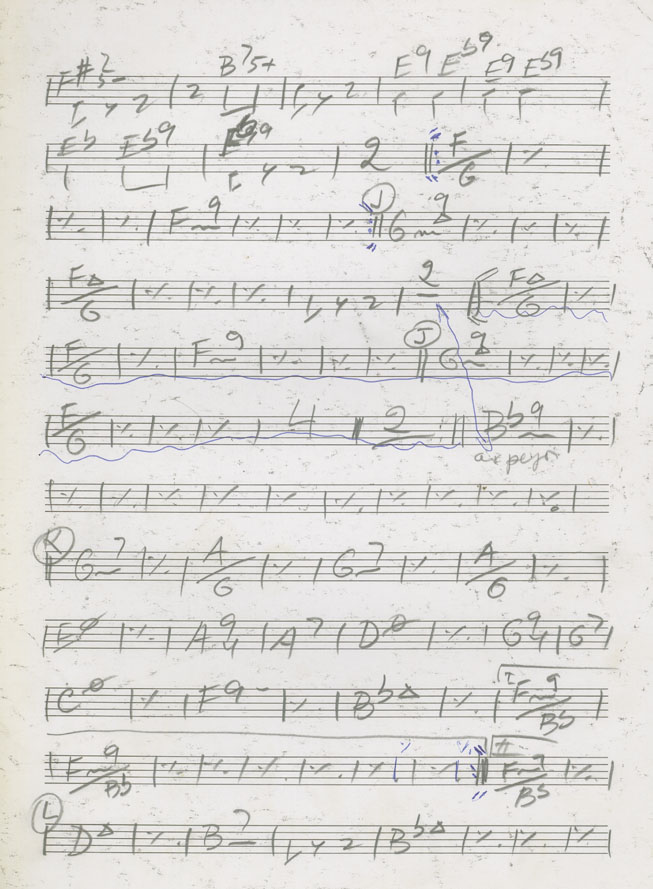 F#7 5- B75+ E9 Eb9 E9 Eb9
Eb Eb9 2 F/G ٪
٪ ٪ F~9 ٪ ٪ ٪ J G~9Δ ٪ ٪ ٪
FΔ/G ٪ ٪ ٪ 2 FΔ/G ٪
F/G ٪ F~9 ٪ ٪ ٪ J G~9 ٪ ٪ ٪
F/G ٪ ٪ ٪ 4 2 Bb9~ ٪
٪ ٪ ٪ ٪ ٪ ٪ ٪ ٪ ٪ ٪
K G~7 ٪ A/G ٪ G~7 ٪ A/G ٪
EØ ٪ A94 A7 DØ ٪ G94 G7
CØ ٪ F9- ٪ BbΔ ٪ I F~9/Bb
F~9/Bb ٪ ٪ ٪ ٪ ٪ II F~9/Bb ٪
L DΔ ٪ B7~ BbΔ ٪ ٪ ٪